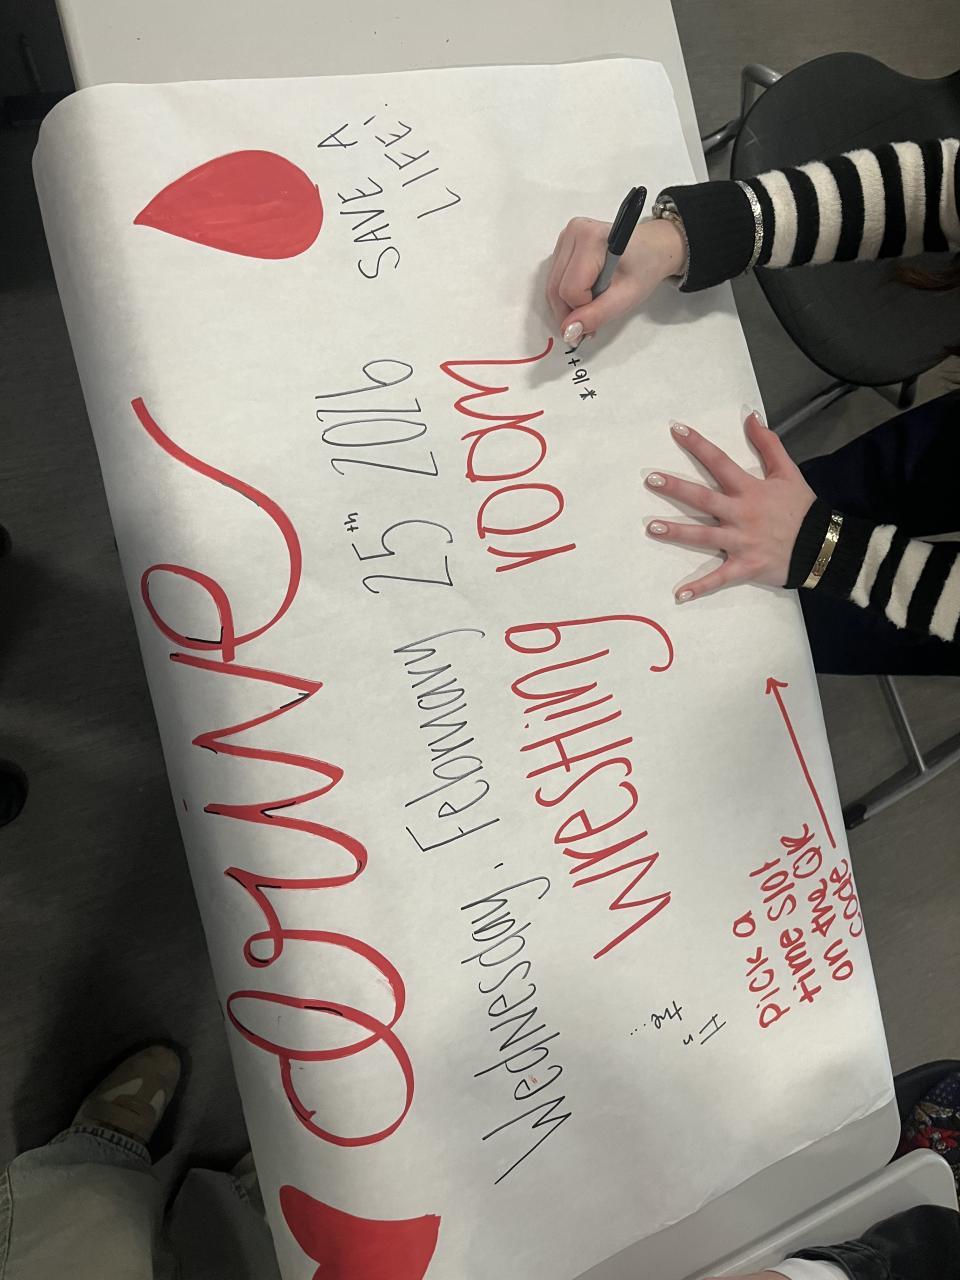 Drive
SAVE A
LIFE.
Wednesday, February 25th 2026
In
the...
Wrestling room
*16+
Pick a
time slot
on the QR
code